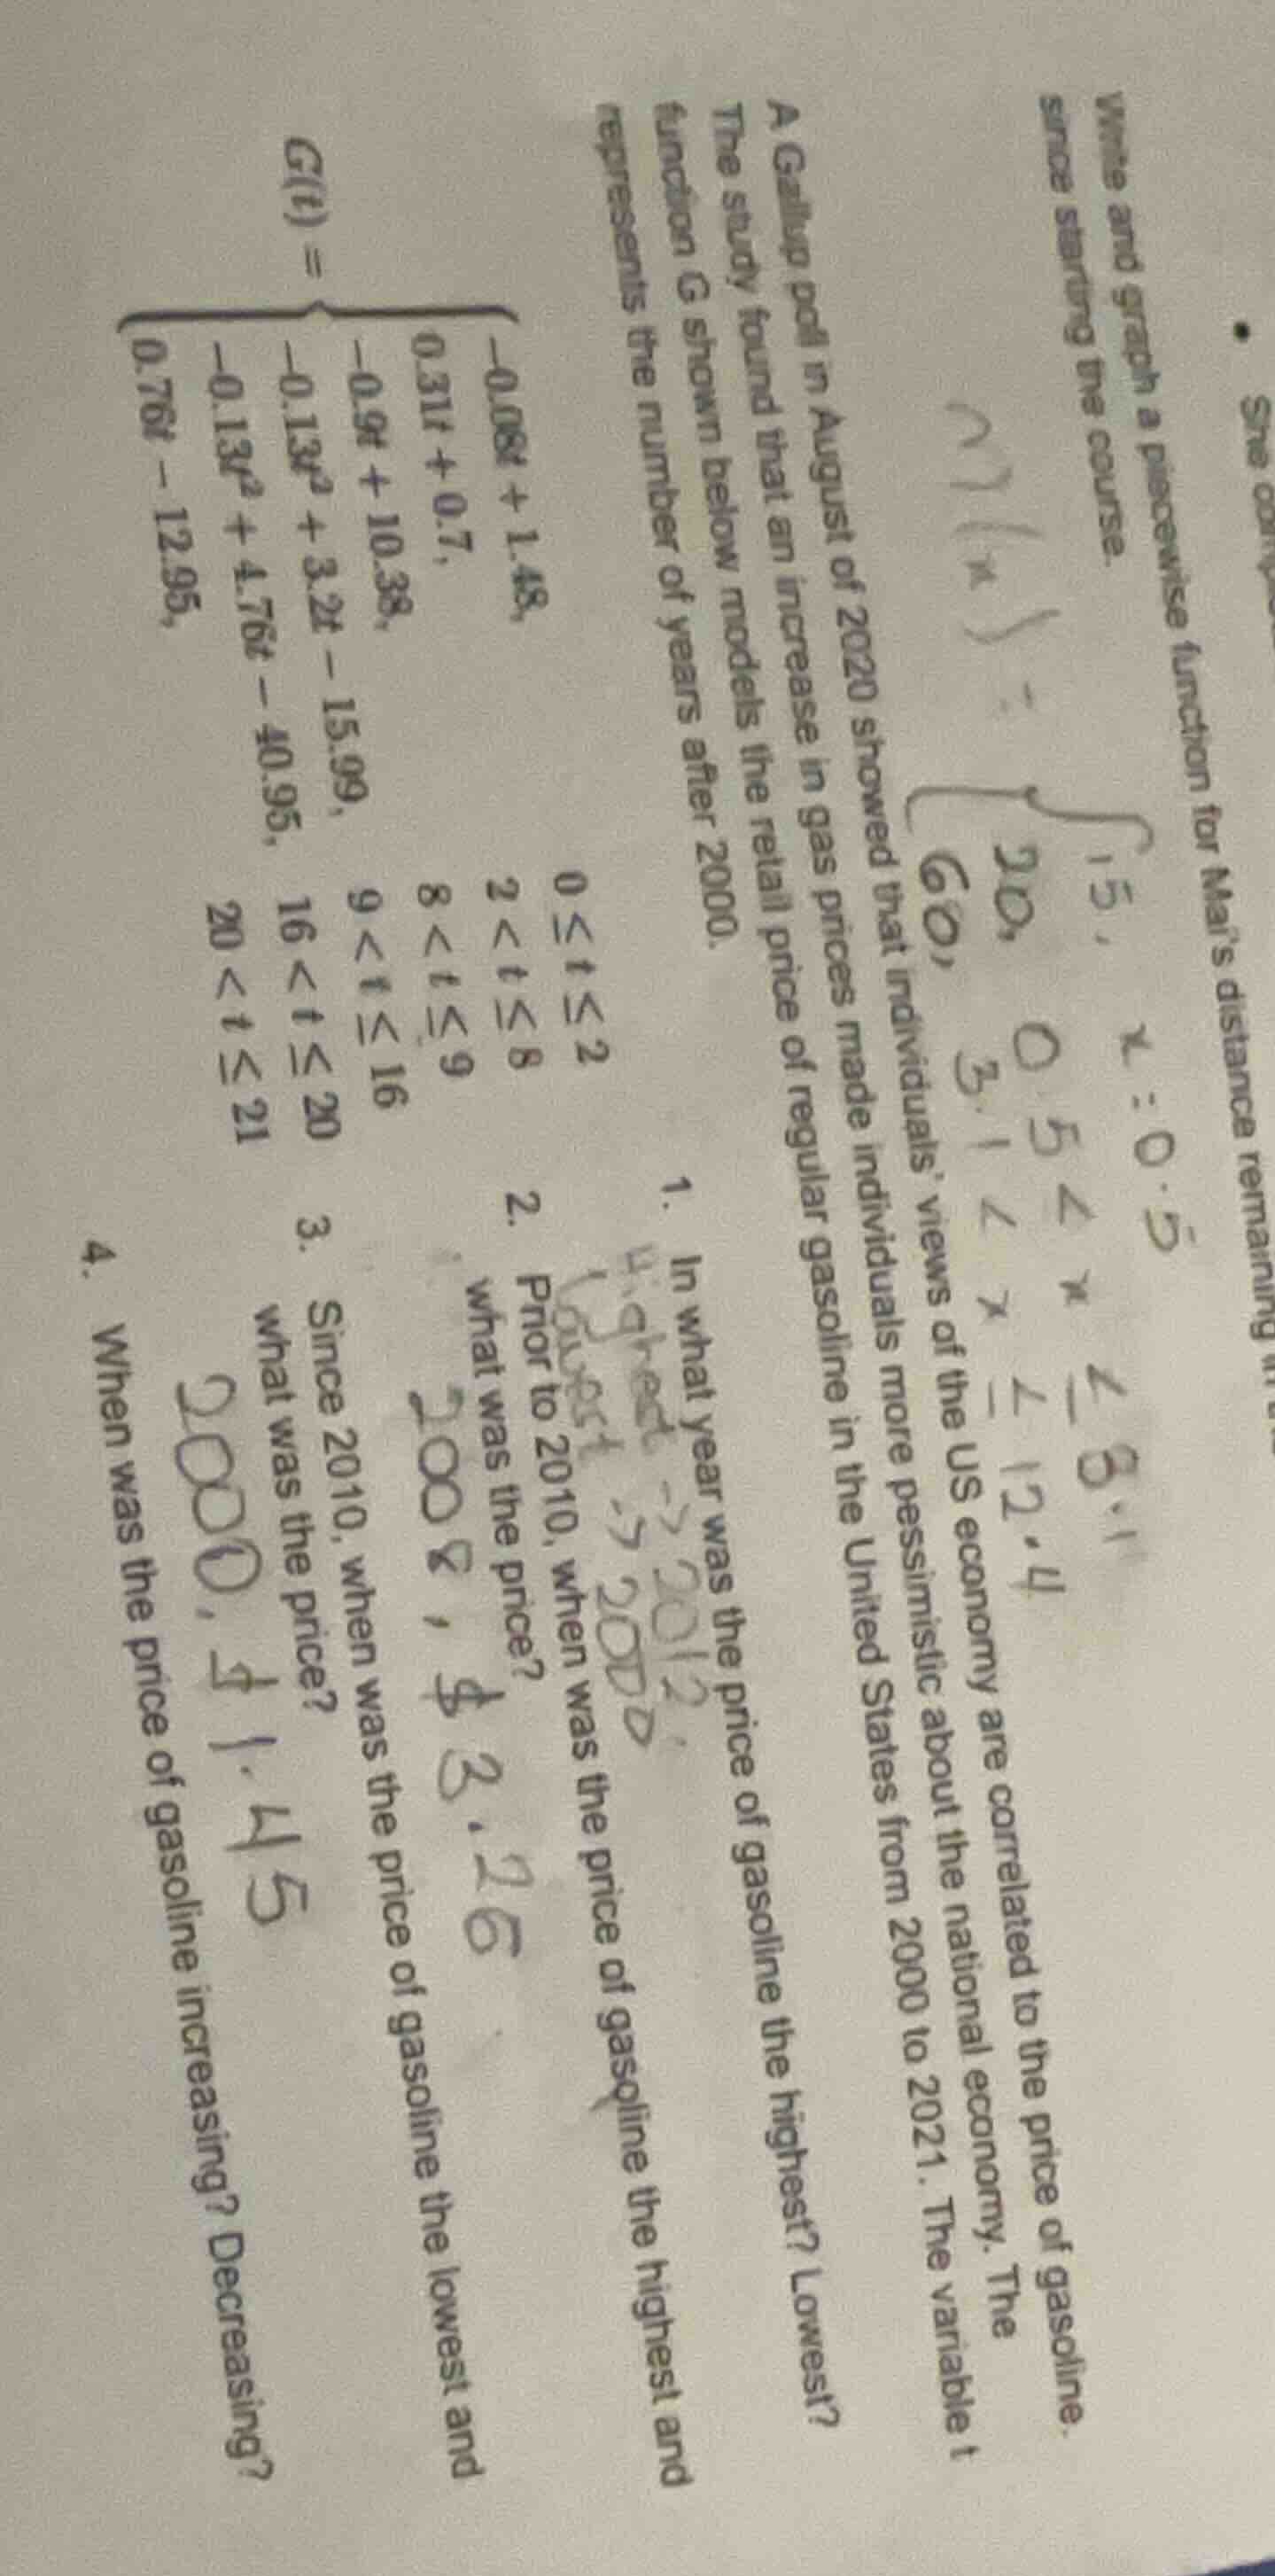 She
Write and graph a piecewise function for Mai's distance remaining
since starting the course.
15, x = 0.5
n(x) = { 20, 0.5 < x ≤ 3.1
60, 3.1 < x ≤ 12.4
A Gallup poll in August of 2020 showed that individuals' views of the US economy are correlated to the price of gasoline.
The study found that an increase in gas prices made individuals more pessimistic about the national economy. The
function G shown below models the retail price of regular gasoline in the United States from 2000 to 2021. The variable t
represents the number of years after 2000.
−0.08t + 1.48, 0 ≤ t ≤ 2
0.31t + 0.7, 2 < t ≤ 8
−0.9t + 10.38, 8 < t ≤ 9
G(t) = { −0.13t² + 3.2t − 15.99, 9 < t ≤ 16
−0.13t² + 4.76t − 40.95, 16 < t ≤ 20
0.76t − 12.95, 20 < t ≤ 21
1. In what year was the price of gasoline the highest? Lowest?
Highest -> 2012,
Lowest -> 2000
2. Prior to 2010, when was the price of gasoline the highest and
what was the price?
2008, $3.26
3. Since 2010, when was the price of gasoline the lowest and
what was the price?
2000, $1.45
4. When was the price of gasoline increasing? Decreasing?